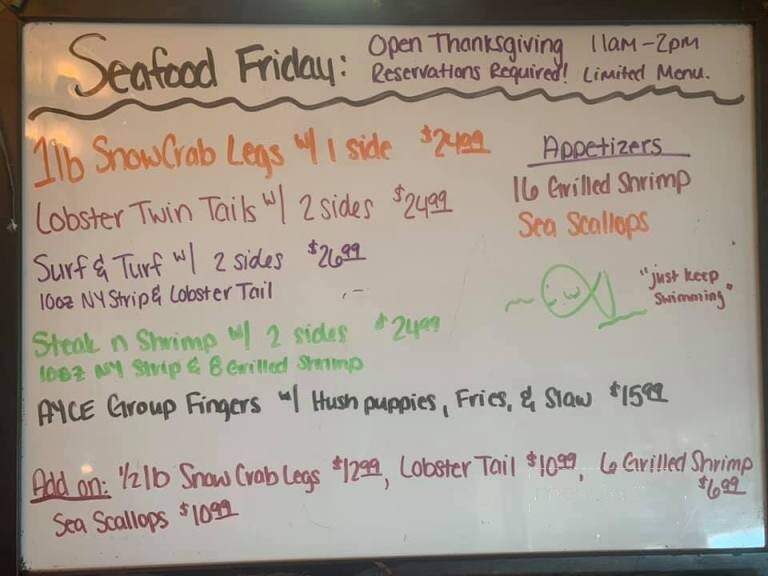 Seafood Friday: Open Thanksgiving 11am-2pm
Reservations Required! Limited Menu.
1lb Snow Crab Legs w/ 1 side $24.99
Lobster Twin Tails w/ 2 sides $24.99
Surf & Turf w/ 2 sides $26.99
10oz NY Strip & Lobster Tail
Steak n Shrimp w/ 2 sides $24.99
10oz NY Strip & 8 Grilled Shrimp
AYCE Group Fingers w/ Hush puppies, Fries, & Slaw $15.99
Appetizers
16 Grilled Shrimp
Sea Scallops
"just keep
swimming"
Add on: 1/2 lb Snow Crab Legs $12.99, Lobster Tail $10.99, 6 Grilled Shrimp
$6.99
Sea Scallops $10.99